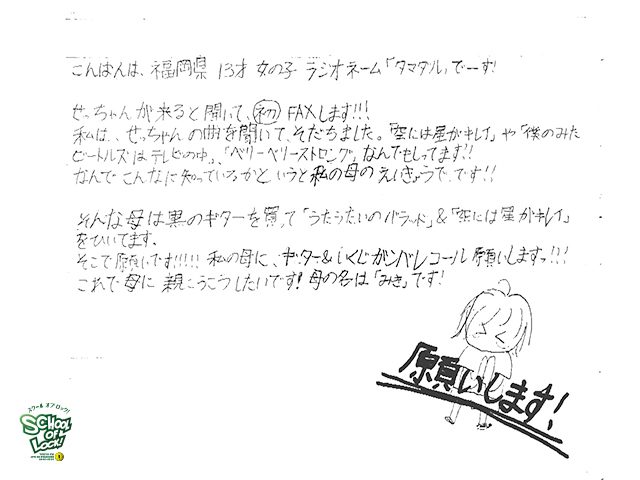 こんばんは、福岡県 13才 女の子 ラジオネーム「タマダル」でーす!
せっちゃんが来ると聞いて、初FAXします!!!
私は、せっちゃんの曲を聞いて、そだちました。「空には星がキレイ」や「僕のみた
ビートルズはテレビの中」、「ベリーベリーストロング」なんでもしってます!!
なんでこんなに知っているかというと私の母のえいきょうで、です!!
そんな母は黒のギターを買って「うたうたいのバラッド」&「空には星がキレイ」
をひいてます、
そこで願いです!!!!! 私の母に、ギター&いくじガンバレコール願いしますっ!!!
これで母に親こうこうしたいです!母の名は「みき」です!
願いします!
スクール オブ ロック!
SCHOOL OF LOCK!